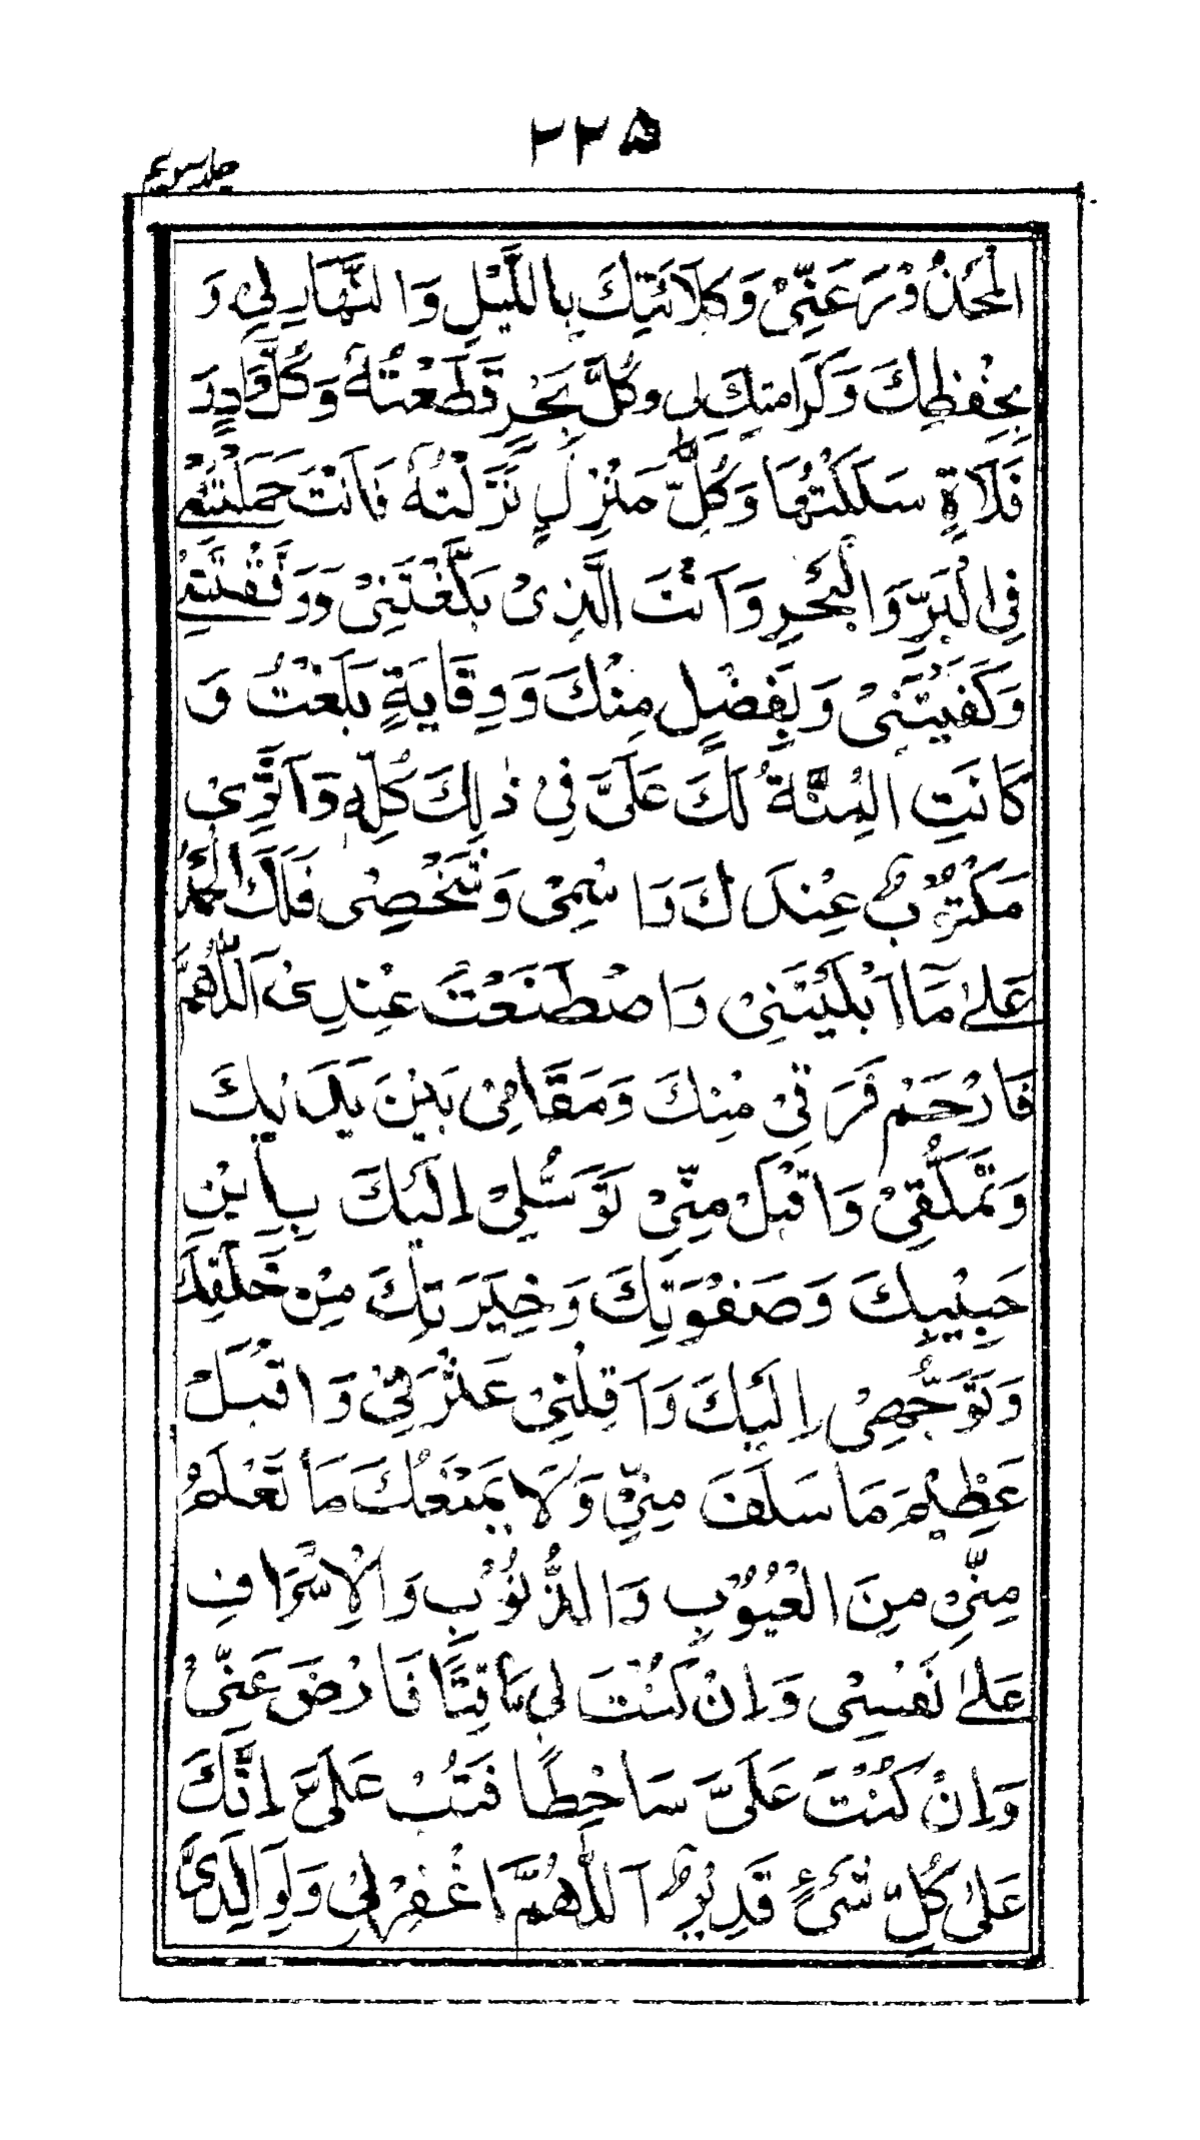 ۲۲۵
جلد سویم
الْمَحْذُوْرَ عَنِّيْ وَكِلَائَتِكَ بِاللَّيْلِ وَالنَّهَارِ لِيْ وَ
بِحِفْظِكَ وَكَرَامَتِكَ لِى وَكُلَّ بَحْرٍ قَطَعْتُهُ وَكُلَّ وَادٍ وَ
فَلَاةٍ سَلَكْتُهَا وَكُلَّ مَنْزِلٍ نَزَلْتُهُ فَاَنْتَ حَمَلْتَنِىْ
فِى الْبَرِّ وَالْبَحْرِ وَاَنْتَ الَّذِىْ بَلَّغْتَنِىْ وَوَفَّقْتَنِىْ
وَكَفَيْتَنِىْ وَبِفَضْلٍ مِنْكَ وَوِقَايَةٍ بَلَغْتُ وَ
كَانَتِ الْمِنَّةُ لَكَ عَلَىَّ فِيْ ذٰلِكَ كُلِّهٖ وَاَثَرِىْ
مَكْتُوْبٌ عِنْدَكَ وَاسْمِىْ وَشَخْصِىْ فَلَكَ الْحَمْدُ
عَلىٰ مَا اَبْلَيْتَنِىْ وَاصْطَنَعْتَ عِنْدِىْ اَللّٰهُمَّ
فَارْحَمْ فَرَقِيْ مِنْكَ وَمَقَامِىْ بَيْنَ يَدَيْكَ
وَتَمَلُّقِىْ وَاقْبَلْ مِنِّىْ تَوَسُّلِىْ اِلَيْكَ بِابْنِ
حَبِيْبِكَ وَصَفْوَتِكَ وَخِيَرَتِكَ مِنْ خَلْقِكَ
وَتَوَجُّهِىْ اِلَيْكَ وَاَقِلْنِىْ عَثْرَتِىْ وَاقْبَلْ
عَظِيْمَ مَا سَلَفَ مِنِّيْ وَلَا يَمْنَعُكَ مَا تَعْلَمُ
مِنِّىْ مِنَ الْعُيُوْبِ وَالذُّنُوْبِ وَالْاِسْرَافِ
عَلىٰ نَفْسِىْ وَاِنْ كُنْتَ لِى مَاقِتًا فَارْضَ عَنِّىْ
وَاِنْ كُنْتَ عَلَىَّ سَاخِطًا فَتُبْ عَلَىَّ اِنَّكَ
عَلىٰ كُلِّ شَىْءٍ قَدِيْرٌ اَللّٰهُمَّ اغْفِرْ لِىْ وَلِوَالِدَىَّ